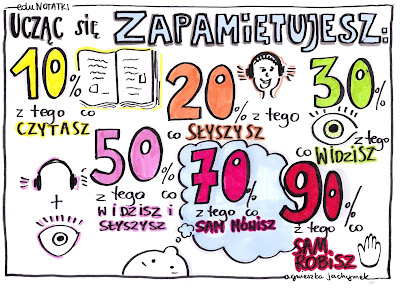 edu NOTATKI
UCZĄC SIĘ ZAPAMIĘTUJESZ:
10%
z tego co
CZYTASZ
20%
z tego
co SŁYSZYSZ
30%
z tego
co WIDZISZ
50%
z tego co
WIDZISZ i
SŁYSZYSZ
+
70%
z tego co
SAM MÓWISZ
90%
z tego co
SAM ROBISZ
agnieszka jachymek